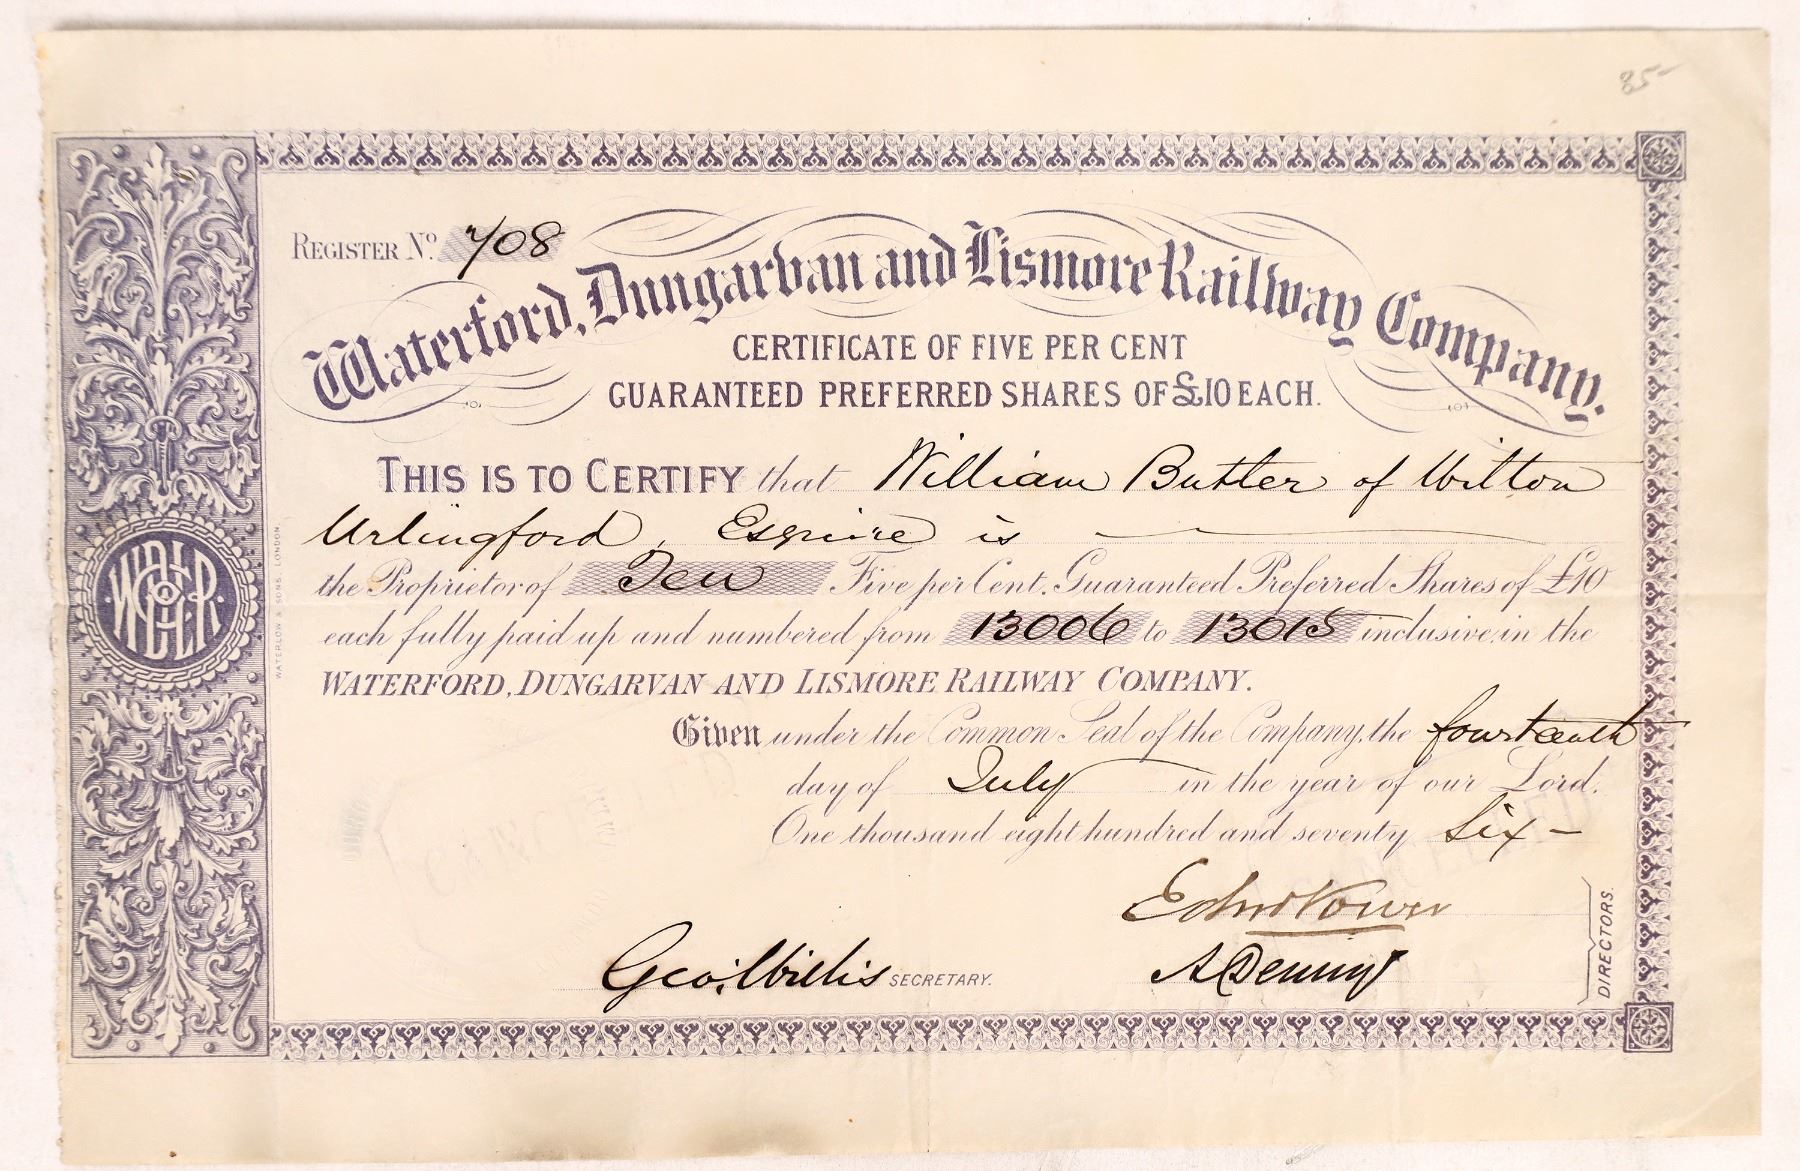 85-
REGISTER No. 708
Waterford, Dungarvan and Lismore Railway Company.
CERTIFICATE OF FIVE PER CENT
GUARANTEED PREFERRED SHARES OF £10 EACH.
THIS IS TO CERTIFY that William Butler of Wilton
Urlingford, Esquire is
the Proprietor of Ten Five per Cent. Guaranteed Preferred Shares of £10
each fully paid up and numbered from 13006 to 13015 inclusive, in the
WATERFORD, DUNGARVAN AND LISMORE RAILWAY COMPANY.
Given under the Common Seal of the Company, the fourteenth
day of July in the year of our Lord.
One thousand eight hundred and seventy Six-
Geo. Willis SECRETARY.
A Denny
DIRECTORS.
WATERLOW & SONS, LONDON.
CANCELLED